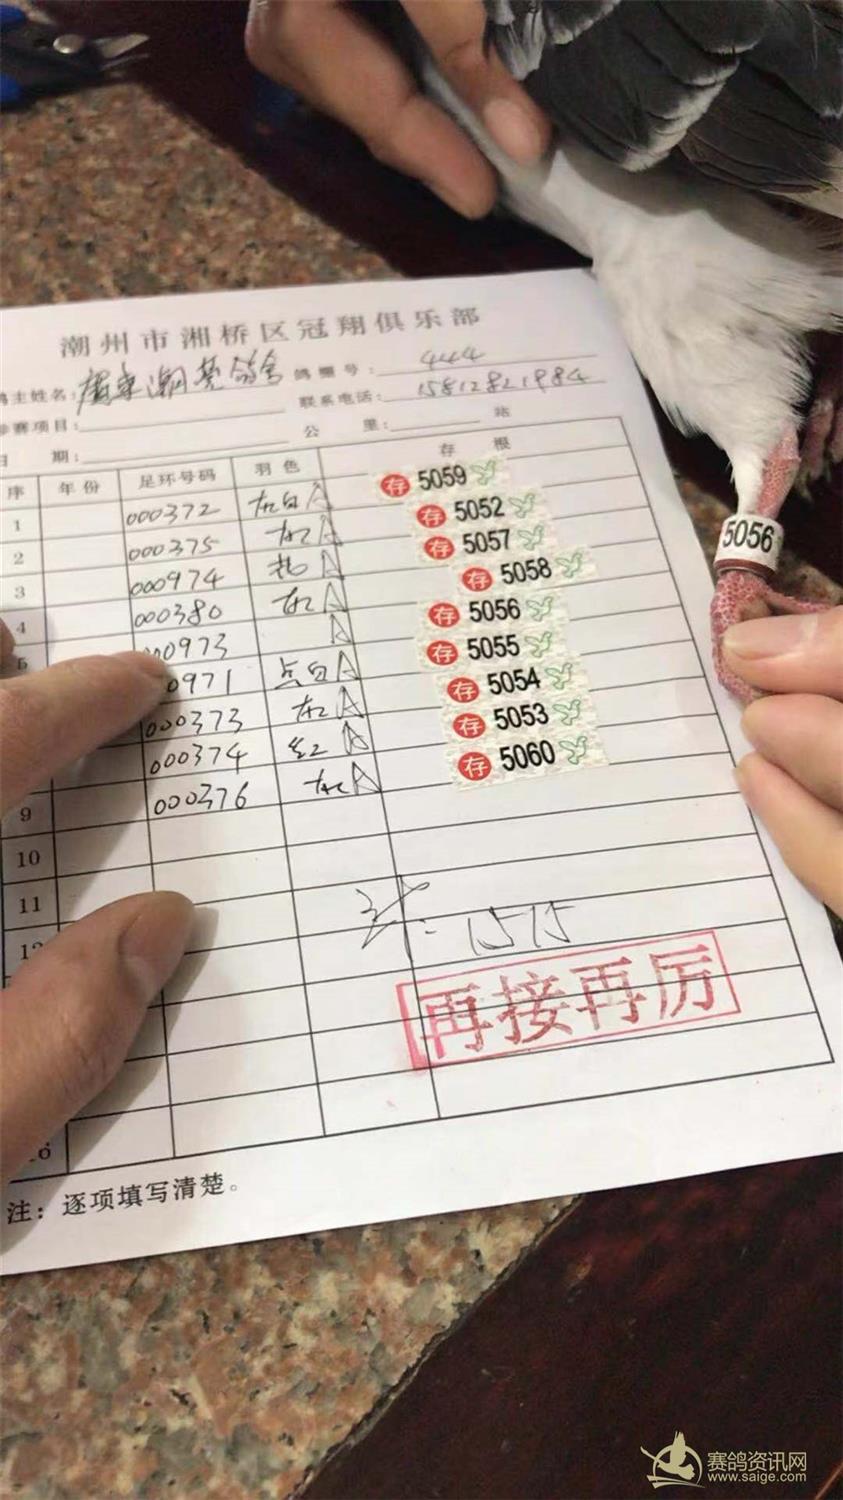 潮州市湘桥区冠翔俱乐部
鸽主姓名: 广东潮 鸽舍 鸽棚号: 444
参赛项目: 联系电话: 15812821984
日期: 公里: 站
序 年份 足环号码 羽色 存根
1 000372 灰白 A 存 5059
2 000375 灰 A 存 5052
3 000974 A 存 5057
4 000380 灰 A 存 5058
5 000973 A 存 5056
0971 点白 A 存 5055
000373 灰 A 存 5054
000374 红 A 存 5053
9 000376 灰 A 存 5060
10
11
12
计: 1575
再接再厉
16
注: 逐项填写清楚。
5056
赛鸽资讯网
www.saige.com